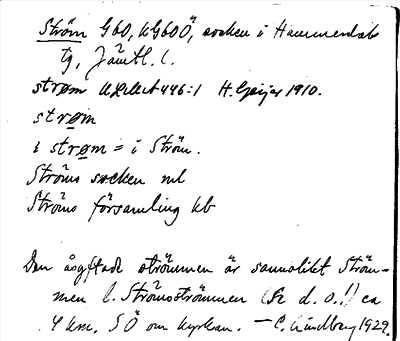 Ström G60, KG60Ö, socken i Hammerdals
tg, Jämtl. l.
strøm 446:1 H. Geijer 1910.
strøm
i strøm = i Ström.
Ströms socken ml
Ströms församling kb
Den åsyftade strömmen är sannolikt Ström-
men l. Strömsströmmen (Se d. o.!) ca
4 km. SÖ om kyrkan. — C. Lindberg 1929.